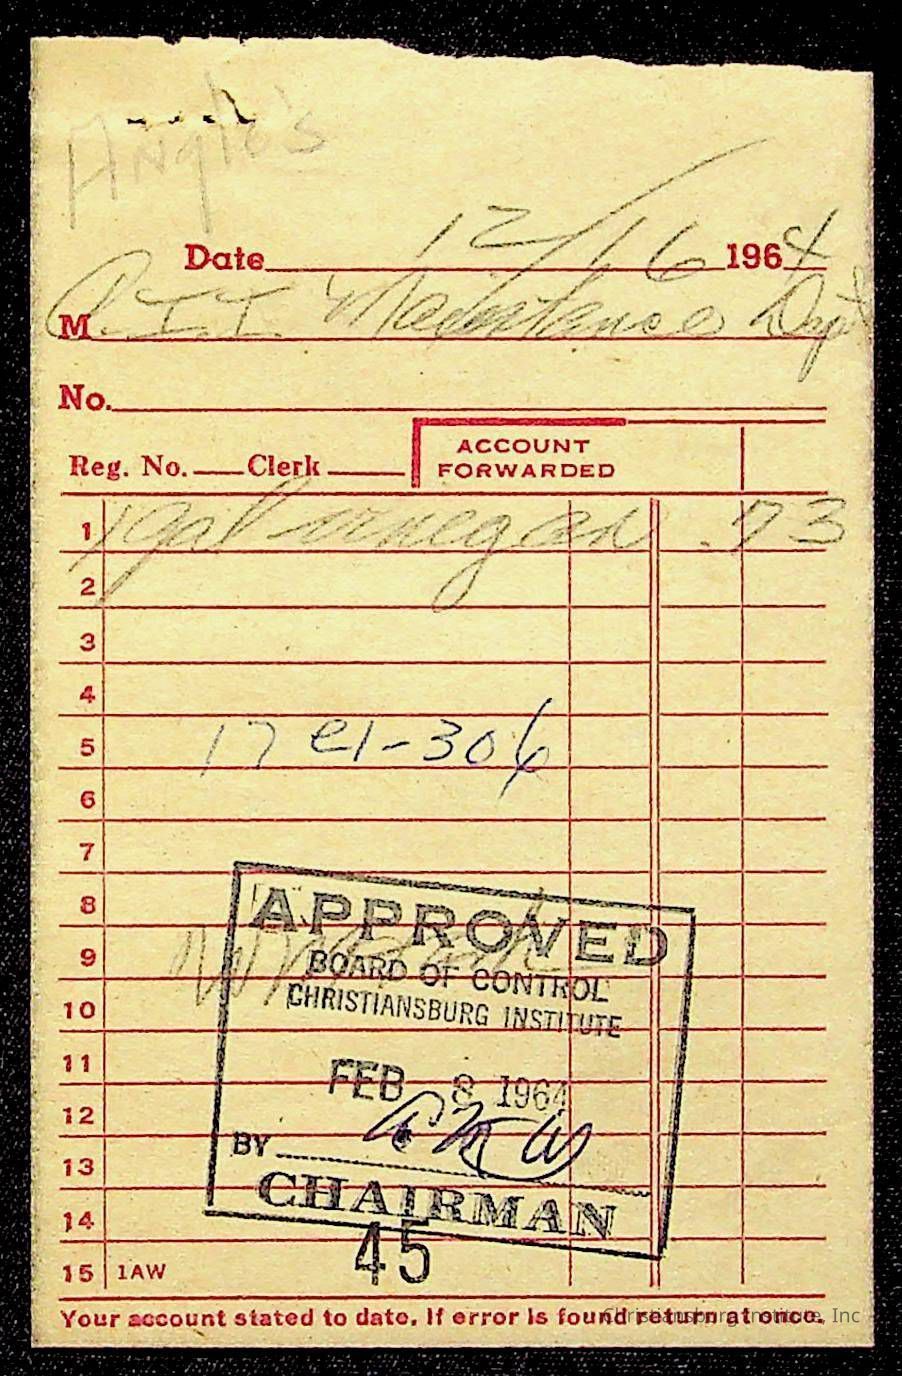 Anglo's
Date 12/16 1964
M C.I.I. Maintance Dept
No.
Reg. No. Clerk ACCOUNT FORWARDED
1 1 gal vinegar .73
2
3
4
5 17 e1-306
6
7
8
9
10
11
12
13
14
15 1AW
APPROVED
BOARD OF CONTROL
CHRISTIANSBURG INSTITUTE
FEB 8 1964
BY
CHAIRMAN
45
Your account stated to date. If error is found return at once.
Christiansburg Institute, Inc